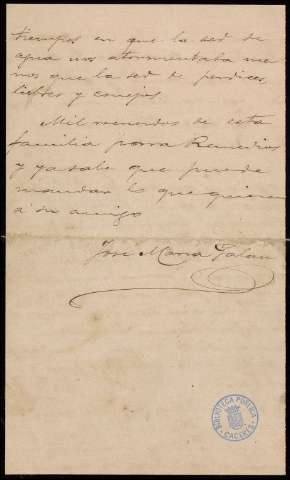 tiempos en que la sed de
agua nos atormentaba me
nos que la sed de perdices,
liebres y conejos.
Mil recuerdos de esta
familia para Remedios
y ya sabe que puede
mandar lo que quiera
á su amigo
José María Galán
BIBLIOTECA PUBLICA
CACERES